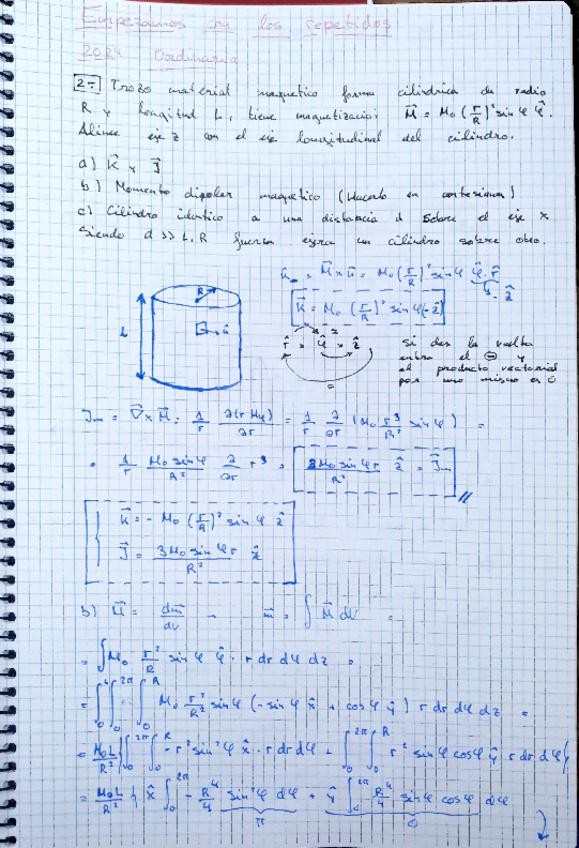 Empezamos con los repetidos
2024 Ordinaria
2- Trozo material magnetico forma cilindrica de radio
R y longitud L, tiene magnetizacion: M⃗ = M₀ (r/R)² sin φ φ̂.
Alinea eje z con el eje longitudinal del cilindro.
a) K⃗ y J⃗
b) Momento dipolar magnetico (Hacerlo en cartesianas)
c) Cilindro identico a una distancia d sobre el eje x
siendo d >> L, R fuerza ejerce un cilindro sobre otro.
K⃗m = M⃗ × n̂ = M₀ (r/R)² sin φ φ̂ · r̂
-ẑ
K⃗ = M₀ (r/R)² sin φ (-ẑ)
R
L
n̂
r̂ × φ̂ × ẑ
si das la vuelta
entra el ⊖ y
el producto vectorial
por uno mismo es 0
Jm = ∇⃗ × M⃗ = 1/r ∂(r Mφ)/∂r = 1/r ∂/∂r (M₀ r³/R² sin φ) =
= 1/r M₀ sin φ/R² ∂/∂r r³ = 3M₀ sin φ r/R² ẑ = J⃗m
K⃗ = - M₀ (r/R)² sin φ ẑ
J⃗ = 3M₀ sin φ r/R² ẑ
b) M⃗ = dm⃗/dv → m⃗ = ∫ M⃗ dv =
= ∫ M₀ r²/R sin φ φ̂ · r dr dφ dz =
= ∫₀ᴸ ∫₀²π ∫₀ᴿ M₀ r²/R² sin φ (- sin φ x̂ + cos φ ŷ) r dr dφ dz =
= M₀L/R² { ∫₀²π ∫₀ᴿ - r² sin² φ x̂ · r dr dφ + ∫₀²π ∫₀ᴿ r² sin φ cos φ ŷ r dr dφ }
= M₀L/R² { x̂ ∫₀²π - R⁴/4 sin² φ dφ + ŷ ∫₀²π R⁴/4 sin φ cos φ dφ
π 0